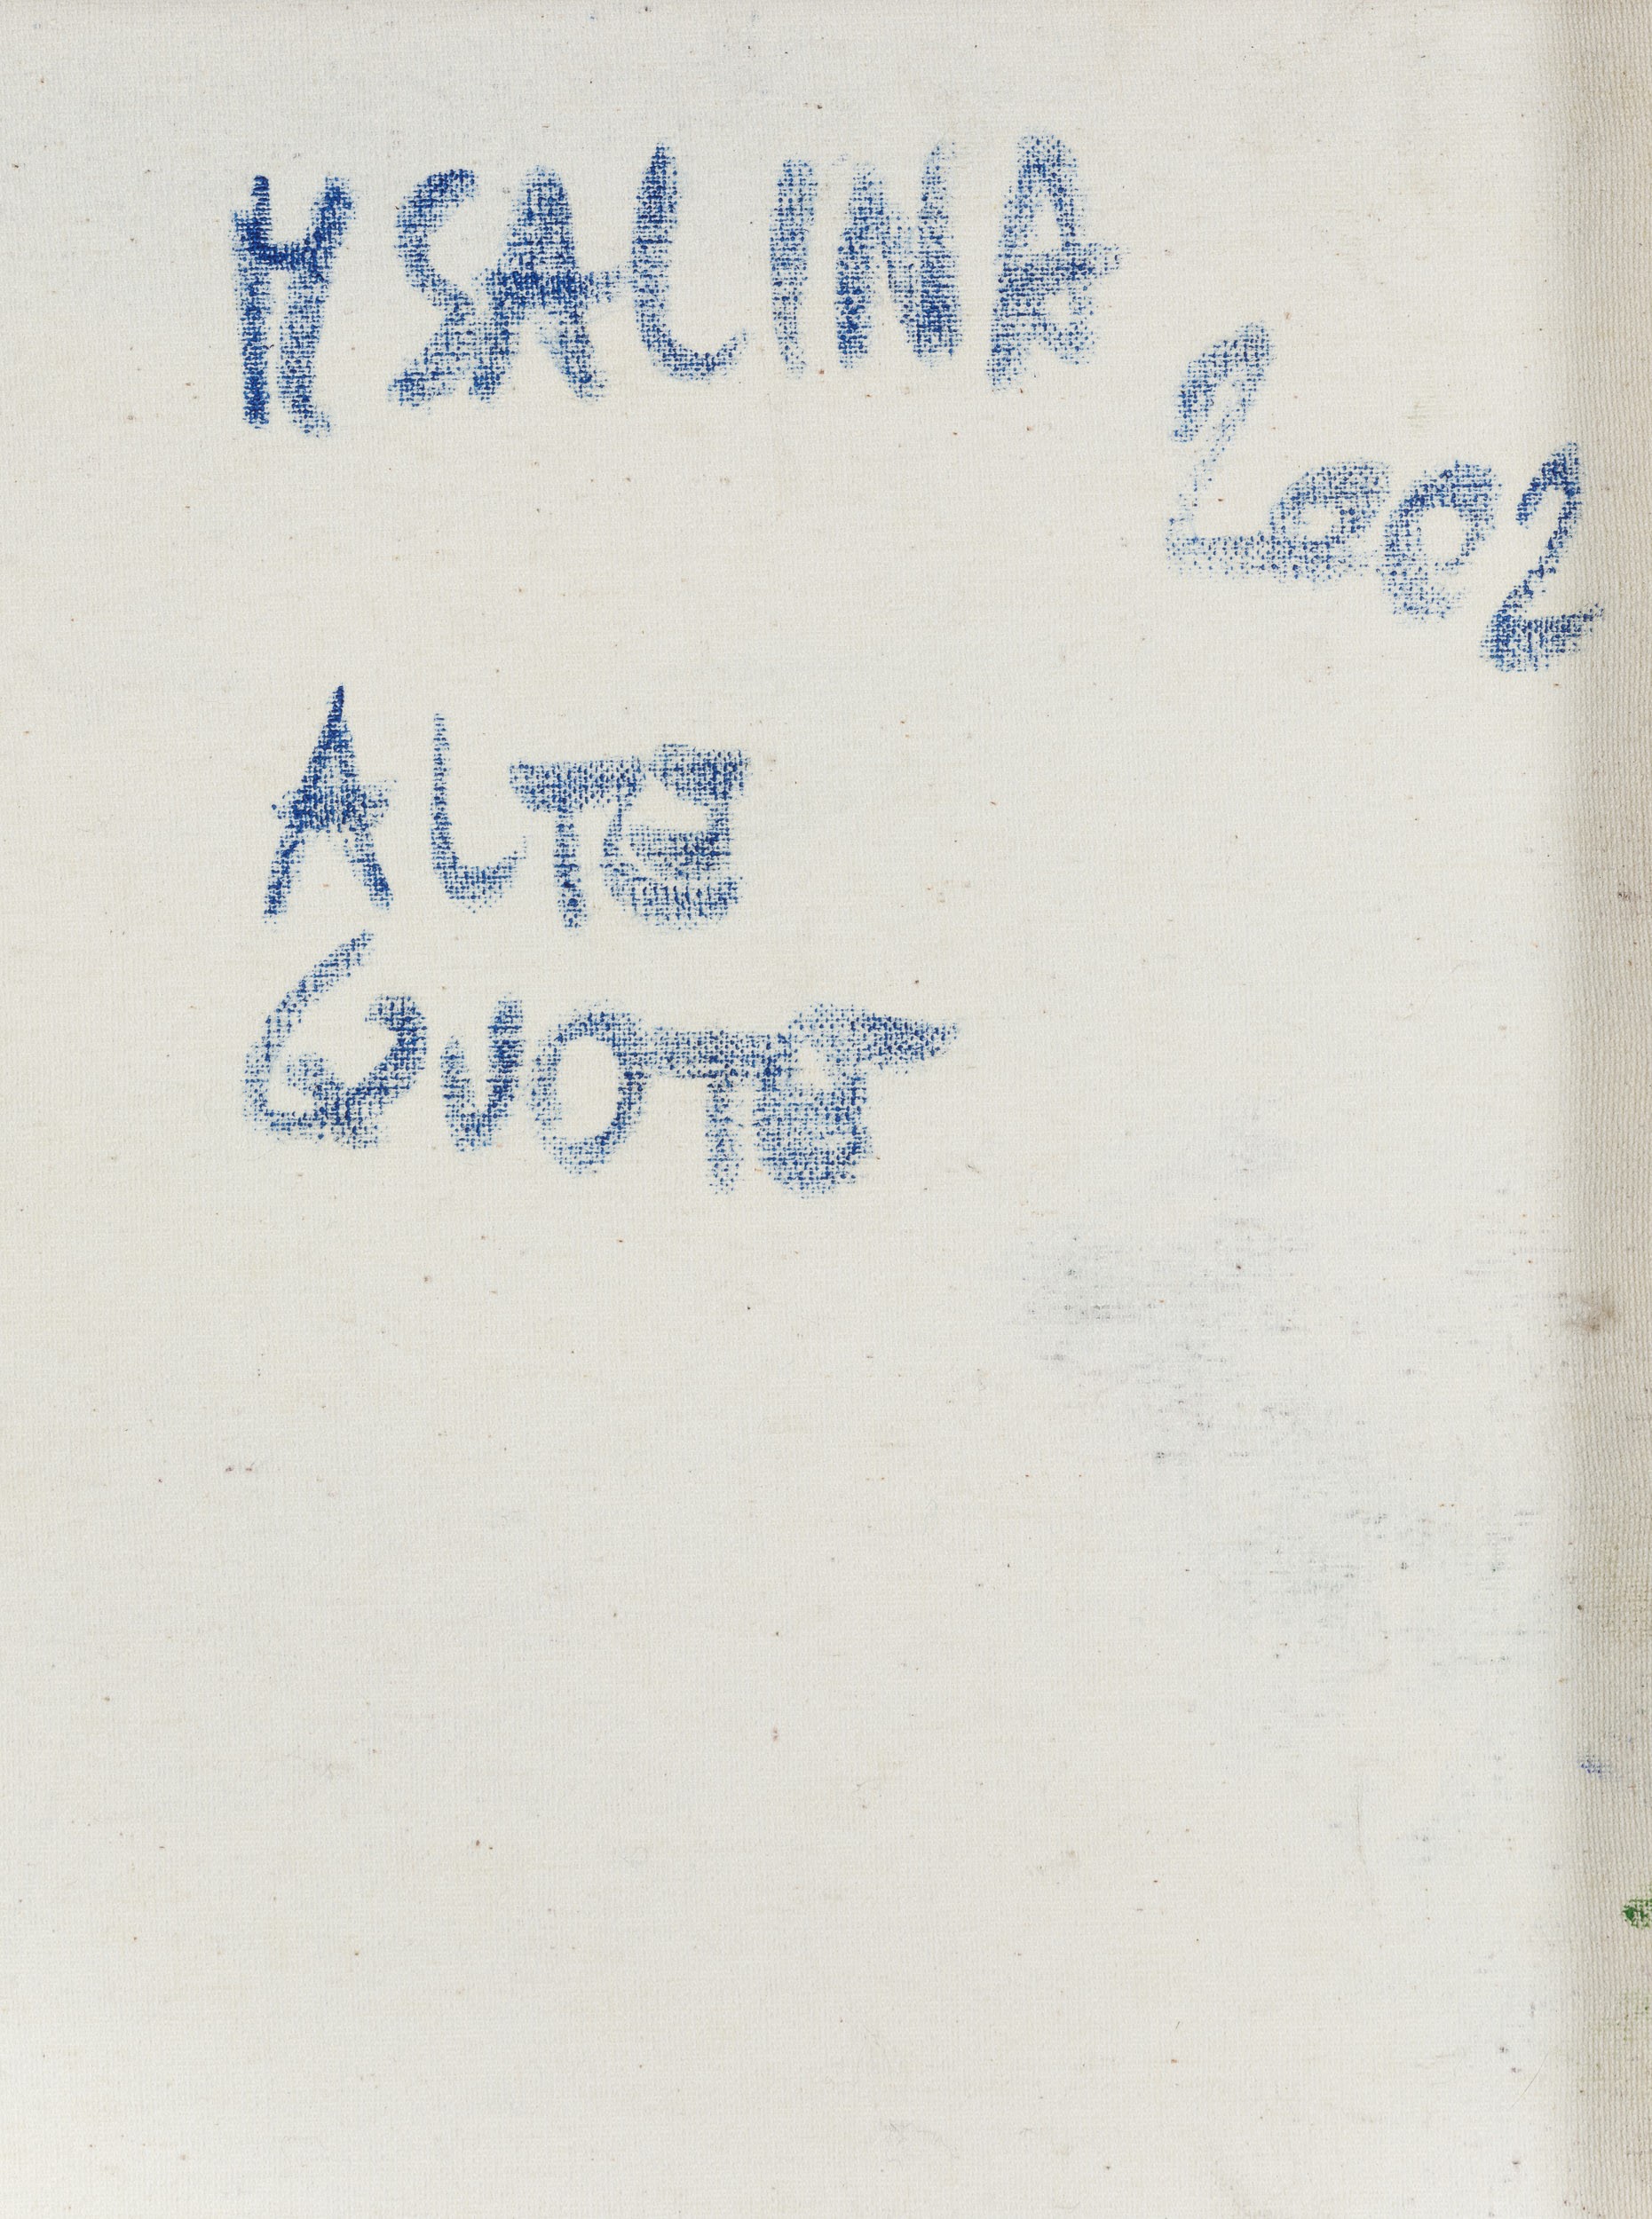 M SALINA
2002
ALTO
GUOTO